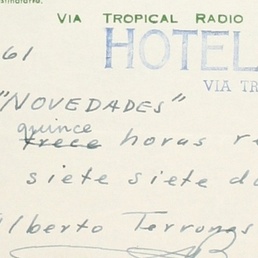 VIA TROPICAL RADIO
HOTEL
61
VIA TR
"NOVEDADES"
quince
trece horas re
siete siete do
Alberto Terrones